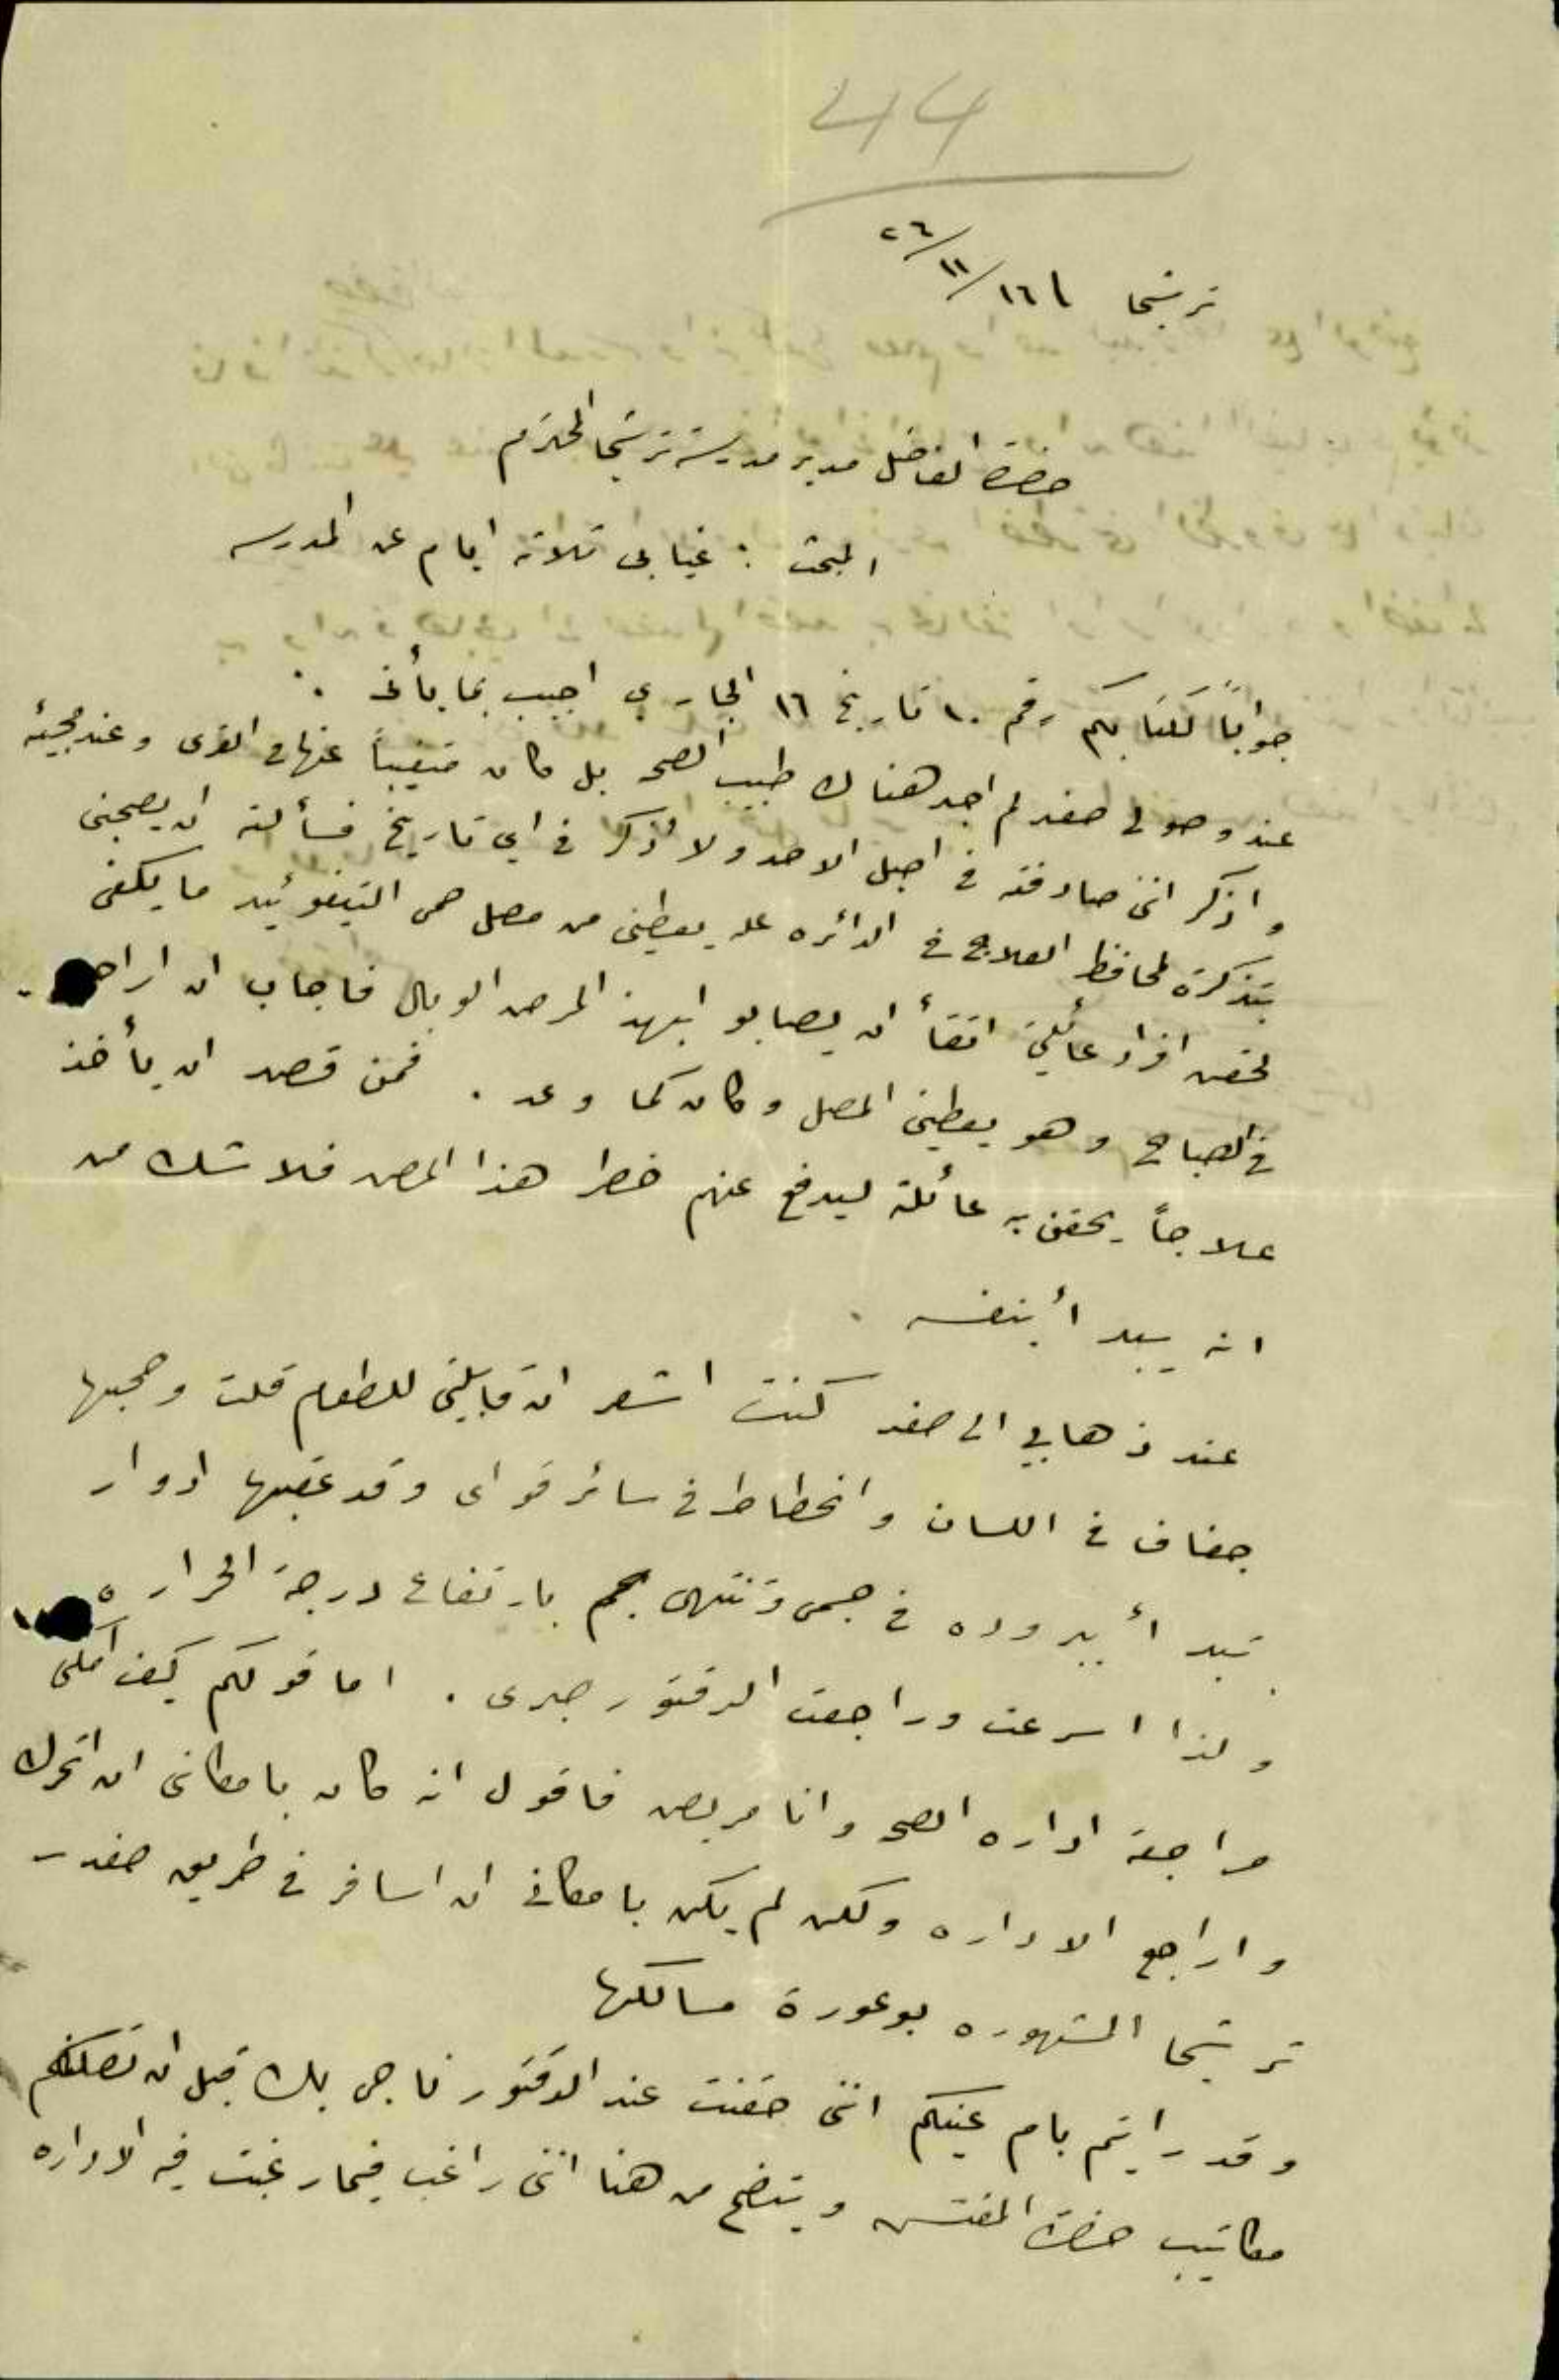 44
ترشيحا ١٦/١١/٢٦
حضرة الفاضل مدير مدرسة ترشيحا المحترم
المبحث : غيابى ثلاثه ايام عن المدرسه
جواباً لكتابكم رقم ١٠ تاريخ ١٦ الجارى اجيب بما يأتى :
عند وصولى صفد لم اجد هناك طبيب الصحه بل كان متغيباً عنها فى القرى وعند مجيئه
واذكر اننى صادفته فى اصيل الاحد ولا اذكر فى اي تاريخ فسألته ان يصحبنى
بتذكرة لمحافظ العلاج فى الدائره عله يعطينى من مصل حمى التيفوئيد ما يكفى
لحقن افراد عائلتى اتقاأ ان يصابو ابهذ المرض الوبال فاجاب ان اراجع
فى الصباح وهو يعطينى المصل وكان كما وعد . فمن قصد ان يأخذ
علاجاً يحقن به عائلته ليدفع عنهم خطر هذا المرض فلا شك من
انه يبد أبنفسه .
عند ذهابي الى صفد كنت اشعر ان قابليتى للطعام قلت وصحبها
جفاف فى اللسان وانحطاط فى سائر قواى وقد عقبها ادوار
تبد أ ببروده فى جسمى وتنتهى بارتفاع درجة الحراره
ولذا اسرعت وراجعت الدقتور صبرى . اما قولكم كيف امكنى
مراجعة اداره الصحه وانا مريض فاقول انه كان بامكانى ان اتحرك
واراجع الاداره ولكن لم يكن بامكانى ان اسافر فى طريق صفد -
ترشيحا المشهوره بوعورة مسالكها
وقد رايتم بام عينكم اننى حقنت عند الدقتور ناجى بك قبل ان تصلكم
مكاتيب حضرة المفتش ويتضح من هنا اننى راغب فيما رغبت فيه الاداره